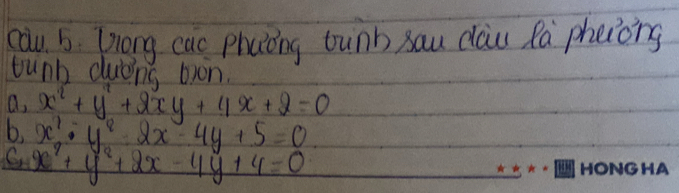 Câu 5. Trong các phương trình sau đâu là phương
trình đường tròn.
a, x² + y² + 2xy + 4x + 2 = 0
b, x² - y² - 2x - 4y + 5 = 0
c, x² + y² + 2x - 4y + 4 = 0
HONG HA